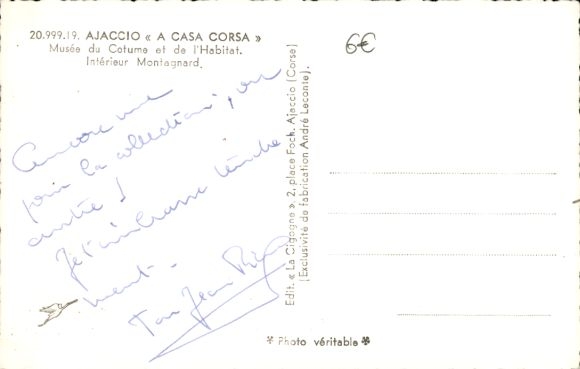 20.999.19. AJACCIO « A CASA CORSA »
Musée du Cotume et de l'Habitat.
Intérieur Montagnard.
6€
Encore une
pour la collection, ou
Je t'embrasse tendre
ment.
Ton Jean
Edit. « La Cigogne », 2, place Foch, Ajaccio (Corse)
(Exclusivité de fabrication André Leconte).
* Photo véritable *